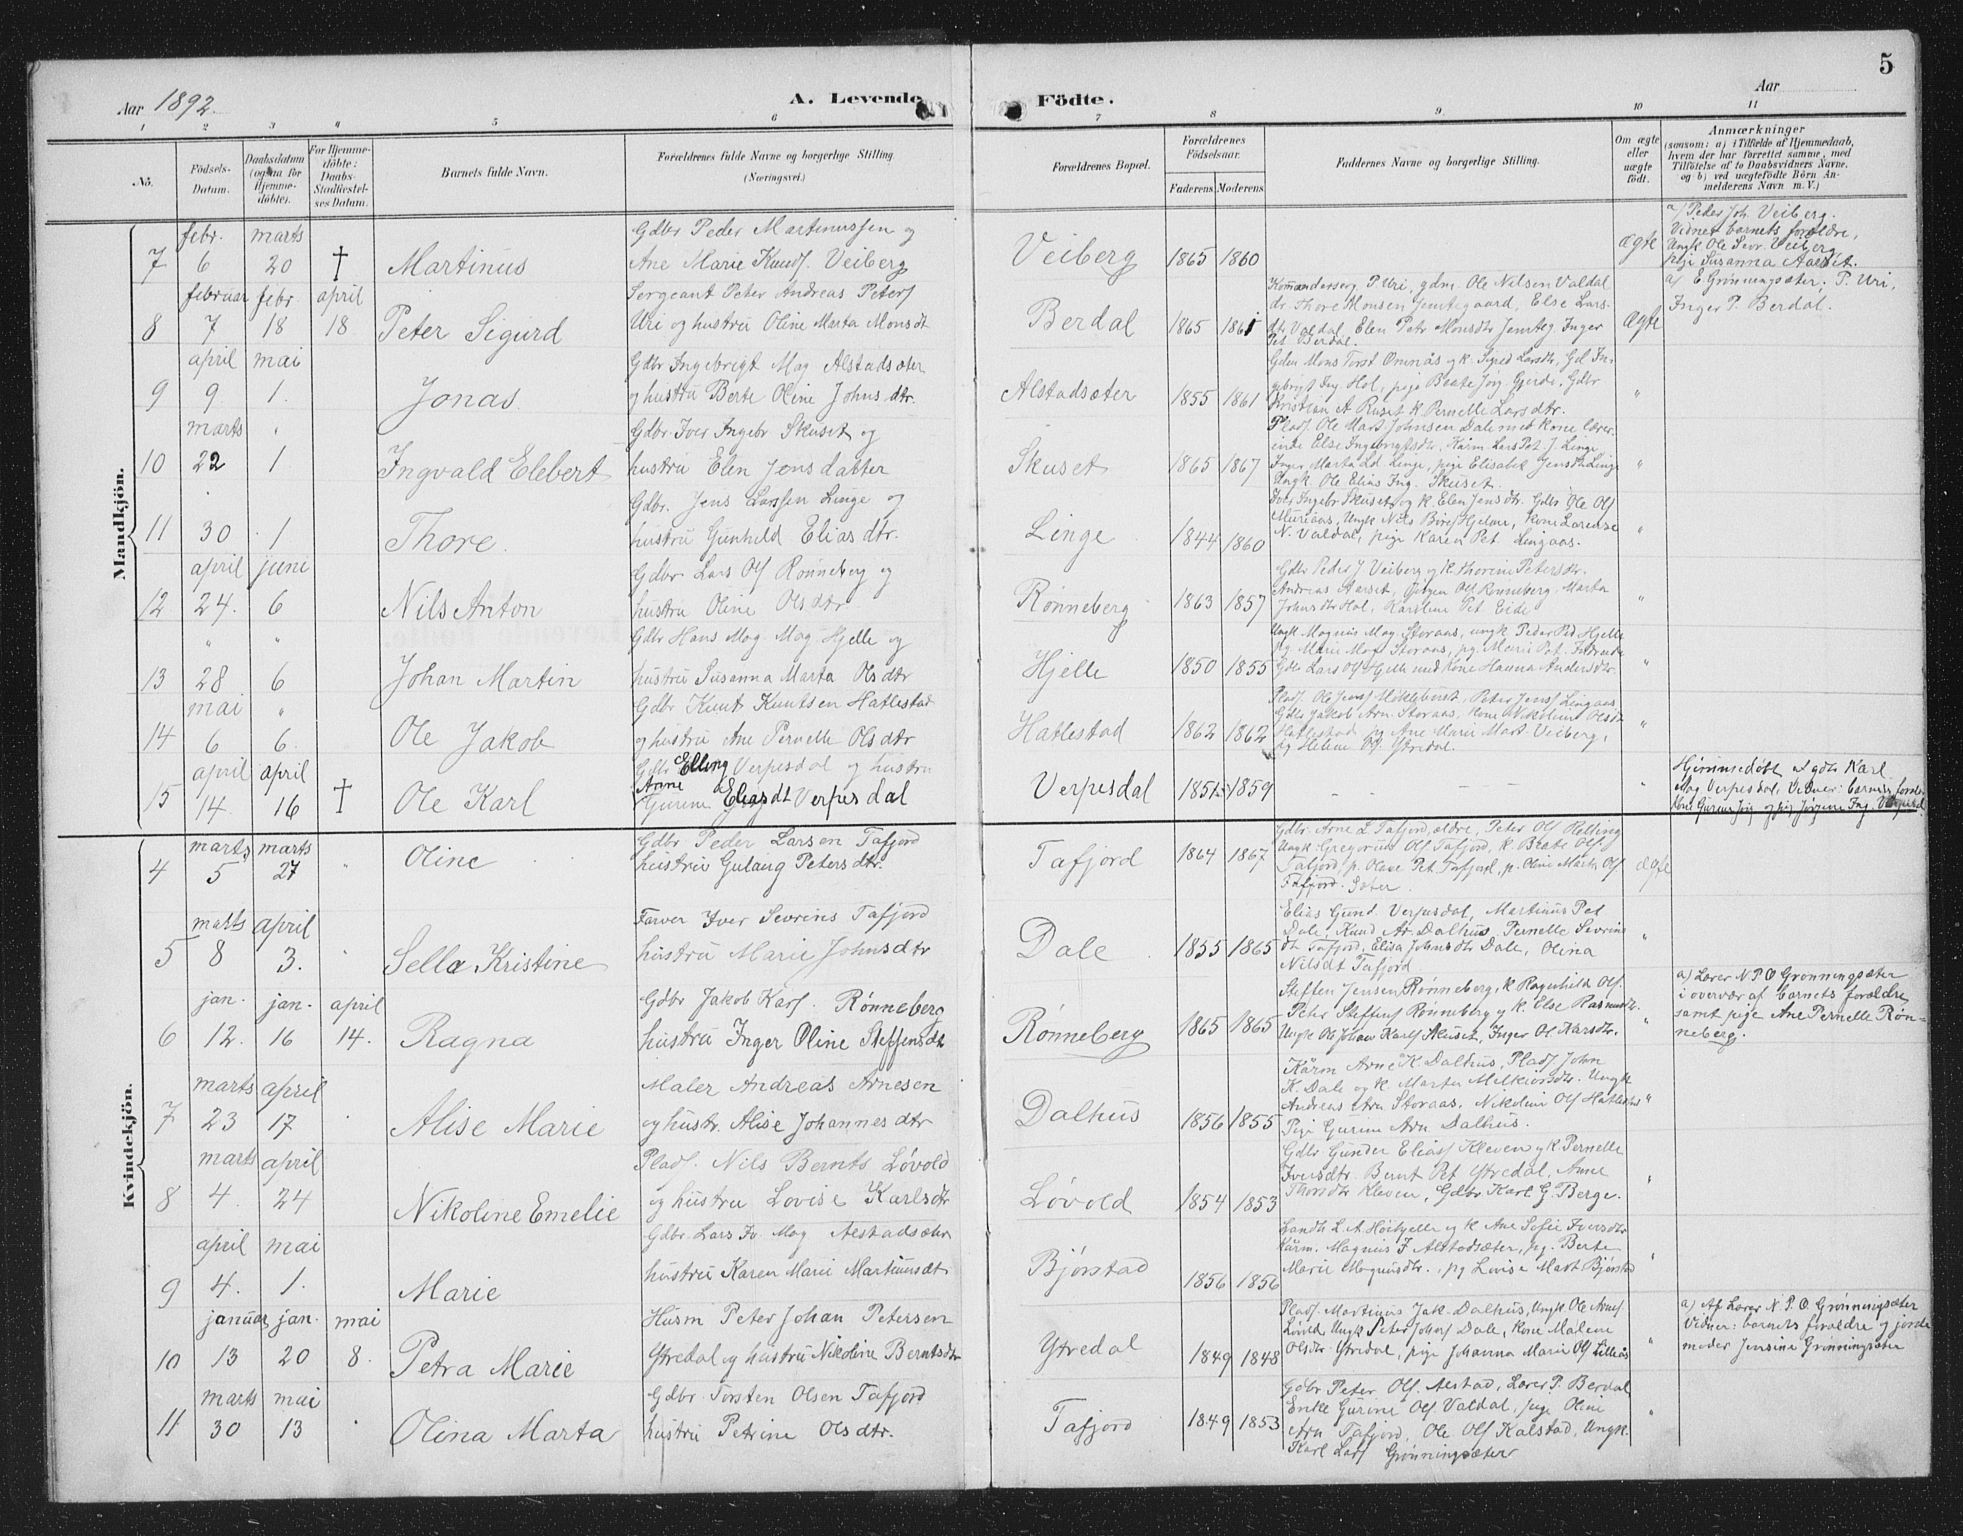 5
Aar 1892.
A. Levende
Födte.
Aar
1 2 3 4 5 6
7 8 9 10 11
No.
Födsels-
Datum.
Daabsdatum
(ogsaa for
Hjemme-
döbte).
For Hjemme-
döbte:
Daabs-
Stadfæstel-
ses Datum.
Barnets fulde Navn.
Forældrenes fulde Navne og borgerlige Stilling
(Næringsvei.)
Forældrenes Bopæl.
Forældrenes
Födselsaar.
Faderens Moderens
Faddernes Navne og borgerlige Stilling.
Om ægte
eller
uægte
födt.
Anmærkninger
(saasom: a) i Tilfælde af Hjemmedaab,
hvem der har forrettet samme, med
Tilföielse af to Daabsvidners Navne.
og b) ved uægtefödte Börn An-
melderens Navn m. V.)
Mandkjön.
febr. marts
7 6 20 † Martinus
Gdbr Peder Martinussen og
Ane Marie Knuds. Veiberg
Veiberg 1865 1860
ægte
a/ Peder Joh. Veiberg.
Vidner barnets forældre,
Ungk Ole Sevr. Veiberg
pige Susanna Aalsit.
februar febr. april
8 7 18 18 Peter Sigurd
Sergeant Peter Andreas Peters
Uri og hustru Oline Marta Monsdt
Berdal 1865 1861
Kommanderserg P Uri, gdm. Ole Nilsen Valdal
dr. Thore Monsen Jemtegaard, Else Lars-
dtr Valdal, Elen Petr Monsdtr Jemteg Inger
Pet Berdal.
ægte
a/ E. Grønningsæter; P. Uri,
Inger P. Berdal.
april mai
9 9 1. Jonas
Gdbr Ingebrigt Mag Alstadsæter
og hustru Berte Oline Johns dtr.
Alstadsæter 1855 1861
Gdm Mons Torst Omnås og k. Signed Larsdtr, Gdl In-
gebrigt Ing Hol, pige Beate Jørg. Gjerde, Gdbr
Kristian A Ruset k Pernelle Lars dtr.
"
marts "
10 22 1 Ingvald Elebert
Gdbr. Iver Ingebr Skuset og
hustru Elen Jens datter
Skuset 1865 1867
Plads. Ole Mart Johnsen Dale med kone lærer-
inde Else Ingebrigtsdtr, Kårm Lars Pet J. Linge
Inger Marta Ld Linge, pige Elisabet Jensdt Linge
Ungk Ole Elias Ing. Skuset.
"
11 30 1 Thore.
Gdbr. Jens Larssen Linge og
hustru Gunhild Elias dtr.
Linge 1844 1860
Iver Ingebr Skuset og k Elen Jens dtr. Gdbr Ole Ols
Muriaas, Ungk Nils Hjelme, kone Lorense
N. Valdal, pige Karen Pet Lingaas.
"
april juni
12 24. 6 Nils Anton
Gdbr Lars Ols Rønneberg og
hustru Oline Ols dtr
Rønneberg 1863 1857
Gdbr Peder J Veiberg og k Thorine Petersdtr.
Andreas Aarset, Jørgen Ols Rønneberg, Marta
Johnsdtr Hol, Karoline Pet Eide
"
" "
13 28 6 Johan Martin
Gdbr Hans Mag. Mag. Hjelle og
hustru Susanna Marta Ols dtr
Hjelle 1850 1855
Ungk Magnus Mag. Storaas, ungk. Peder Ped Hjelle
pg Marie Mag Storaas, pg. Marie Pet.
Gdbr Lars Ols Hjelle med kone Hanna Andersdtr.
"
mai "
14 6 6. Ole Jakob
Gdbr Knut Knutsen Hatlestad
og hustru Ane Pernelle Ols dtr
Hatlestad 1862 1862
Plads Ole Jens Møklebust, Peter Jens Lingaas
Gdbr Jakob Arn. Storaas, kone Nikoline Olsdt
Hatlestad pg Ane Marie Mart Veiberg,
pg Helene Ols Ytredal.
"
april april
15 14. 16 † Ole Karl
Gdbr Elling Verpesdal og hustru
Anne
Gurine Eliasdt Verpesdal
Verpesdal 1851 1859
- - -
"
Hjemmedøbt af gdbr Karl
Mag Verpesdal. Vidner: barnets foreldr
kone Gurine Jørg og pig Jørgine Ing. Verpesd.
Kvindekjön.
marts marts
4 5 27 " Oline
Gdbr Peder Larsen Tafjord
hustru Gulaug Peters dtr.
Tafjord 1864 1867
Gdbr. Arne L Tafjord, ældre, Peter Ols Relling
Ungk Gregorius Ols Tafjord, k. Beate Ols
Tafjord, p. Olave Pet Tafjord, p. Oline Marta Ols
Tafjord. Sæter.
ægte
marts april
5 8 3. " Sella Kristine
Farver Iver Sevrins Tafjord
hustru Marie Johnsdtr
Dale 1855 1865
Elias Gund. Verpesdal, Martinus Pet
Dale, Knud Ar. Dalhus, Pernelle Sevrins
dt Tafjord, Elisa Johnsdtr Dale, Olina
Nilsdt Tafjord
"
jan. jan. april
6 12. 16 14. Ragna
Gdbr Jakob Kars. Rønneberg
hustru Inger Oline Steffensdt
Rønneberg 1865 1865
Steffen Jensen Rønneberg, k Ragnhild Ols.
Peter Steffens Rønneberg og k. Else Rasmusdt.
Ungk Ole Johan Karls Skuset, Inger Ol. Karsdtr.
"
a) Lærer N. P. O Grønningsæter
i overvær af barnets forældre
samt pige Ane Pernelle Røn-
neberg.
marts april
7 23 17 " Alise Marie
Maler Andreas Arnesen
og hustr. Alise Johannes dtr
Dalhus 1856 1855
Kårm Arne K. Dalhus, Plads John
K. Dale og k. Marta Melkiorsdtr. Ungk
Andreas Arn Storaas, Nikoline Ols Hatlestad
Pige Gurine Arn Dalhus.
"
marts april
8 4. 24 Nikoline Emelie
Plads. Nils Bernts Løvold
og hustru Lovise Karlsdtr
Løvold 1854 1853
Gdbr Gunder Elias Kleven og k. Pernelle
Iversdtr. Bernt Pet Ytredal, Anne
Thorsdtr Kleven, Gdbr Karl G. Berge.
"
april mai
9 4. 1. Marie
Gdbr. Lars Iv. Mag Alstadsæter
hustru Karen Marie Martinusdt
Bjørstad 1856 1856
Landh L. A. Høihjelle og k Ane Sofie Iversdtr
Kårm. Magnus I Alstadsæter, pg. Berte
Marie Magnusdtr., pg Lovise Mart Bjørstad
"
januar jan. mai
10 13 20 8. Petra Marie
Husm Peter Johan Petersen
Ytredal og hustru Nikoline Berntsdtr
Ytredal 1849 1848
Plads. Martinus Jak. Dalhus, Ungk Ole Arnes
Løvold, Ungk Peter Johns Dale, kone Malene
Olsdtr Ytredal, pige Johanna Marie Ols Lilleås
"
a) Af Lærer N. P. O Grønningsæter
Vidner: barnets forældre og jorde
moder Jensine Grønningsæter
marts mai
11 30 13 " Olina Marta
Gdbr. Torsten Olsen Tafjord
hustru Petrine Ols dtr.
Tafjord 1849 1853
Gdbr Peter Ols. Alstad, Lærer P. Berdal
Enke Gurine Ols Valdal, pige Oline
Arn Tafjord, Ole Ols Kalstad, Ungk.
Karl Lars Grønningsæter
"